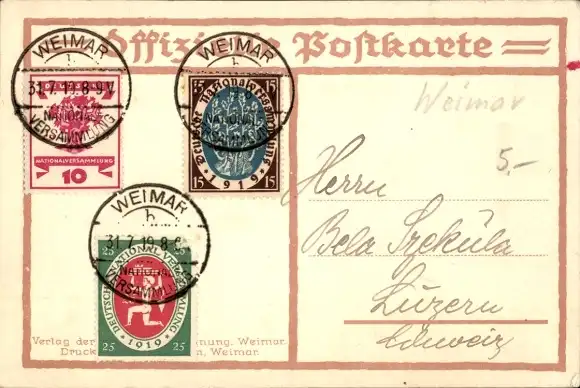 Offizielle Postkarte
WEIMAR
b
31.7.19.8-9V
NATIONAL
VERSAMMLUNG
NATIONALVERSAMMLUNG
10
WEIMAR
b
NATIONAL
15 15
Deutsche Nationalversammlung
15 1919 15
Weimar
5,-
Herrn
Bela Szekúla
Luzern
Schweiz
WEIMAR
b
31.7.19.8
NATIONAL
VERSAMMLUNG
25 25
DEUTSCHE NATIONALVERSAMMLUNG
1919
25 25
Verlag der nung, Weimar.
Druck n, Weimar.